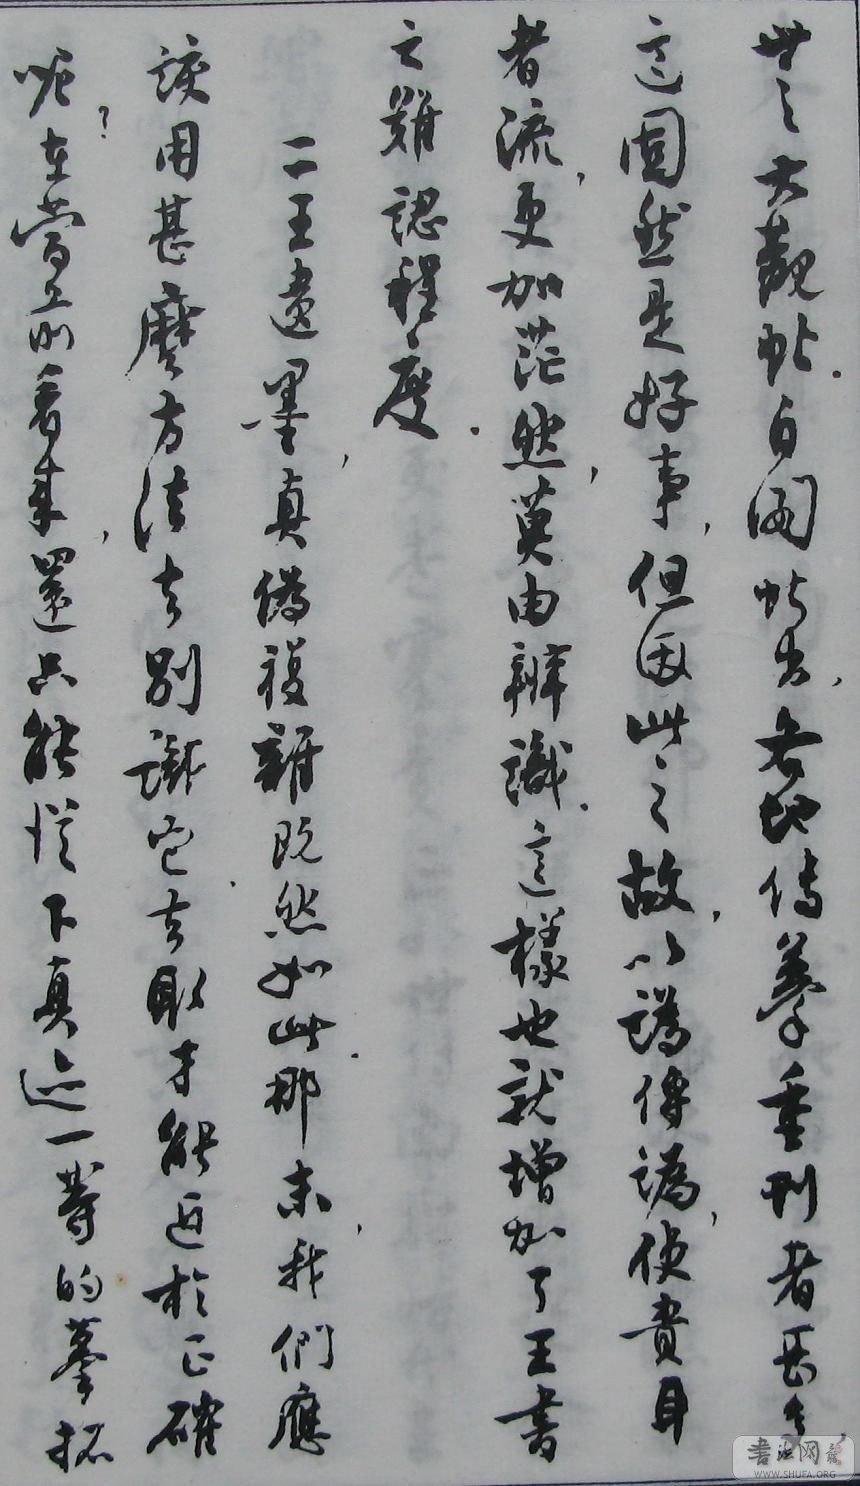 世之大觀帖.自閣帖出,各地傳摹重刊者甚多,
這固然是好事,但因此之故,以譌傳譌,使貴耳
者流,更加茫然,莫由辨識.這樣也就增加了王書
之難認程度.
二王遺墨,真偽複雜既然如此.那末,我們應
該用甚麼方法去別識它.去取才能近於正確
呢?在當前看來,還只能從下真迹一等的摹拓
书法网
WWW.SHUFA.ORG